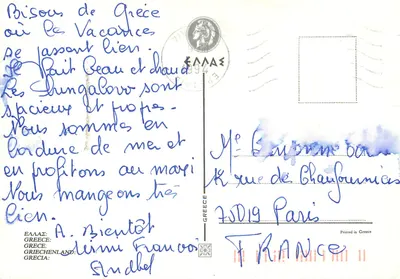 Bisous de Grèce
où les Vacances
se passent bien.
Il fait beau et chaud
Les bungalows sont
spacieux et propres.
Nous sommes en
bordure de mer et
en profitons au maxi
Nous mangeons très
bien.
A. Bientôt
ΕΛΛΑΣ:
GREECE:
GRECE:
GRIECHENLAND:
GRECIA:
ΕΛΛΑΣ
GREECE
Me
rue de
75019 Paris
Printed in Greece
FRANCE